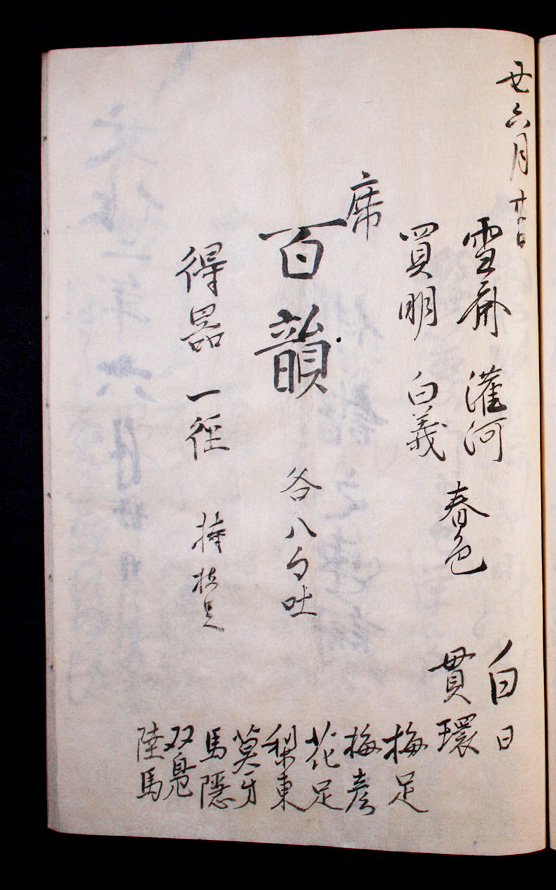 廿六月廿日
雪斎 灌河 春色 白日
買明 白義 貫環
席
百韻 各八句吐
得器 一徑
梅足
梅彦
花足
梨東
莫牙
馬隠
双鳧
陸馬